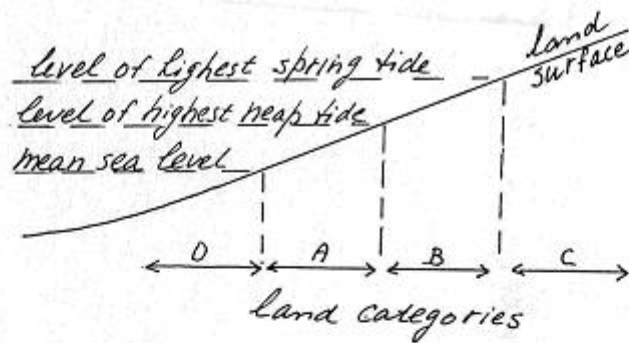 land
surface
level of highest spring tide
level of highest neap tide
mean sea level
D A B C
land categories